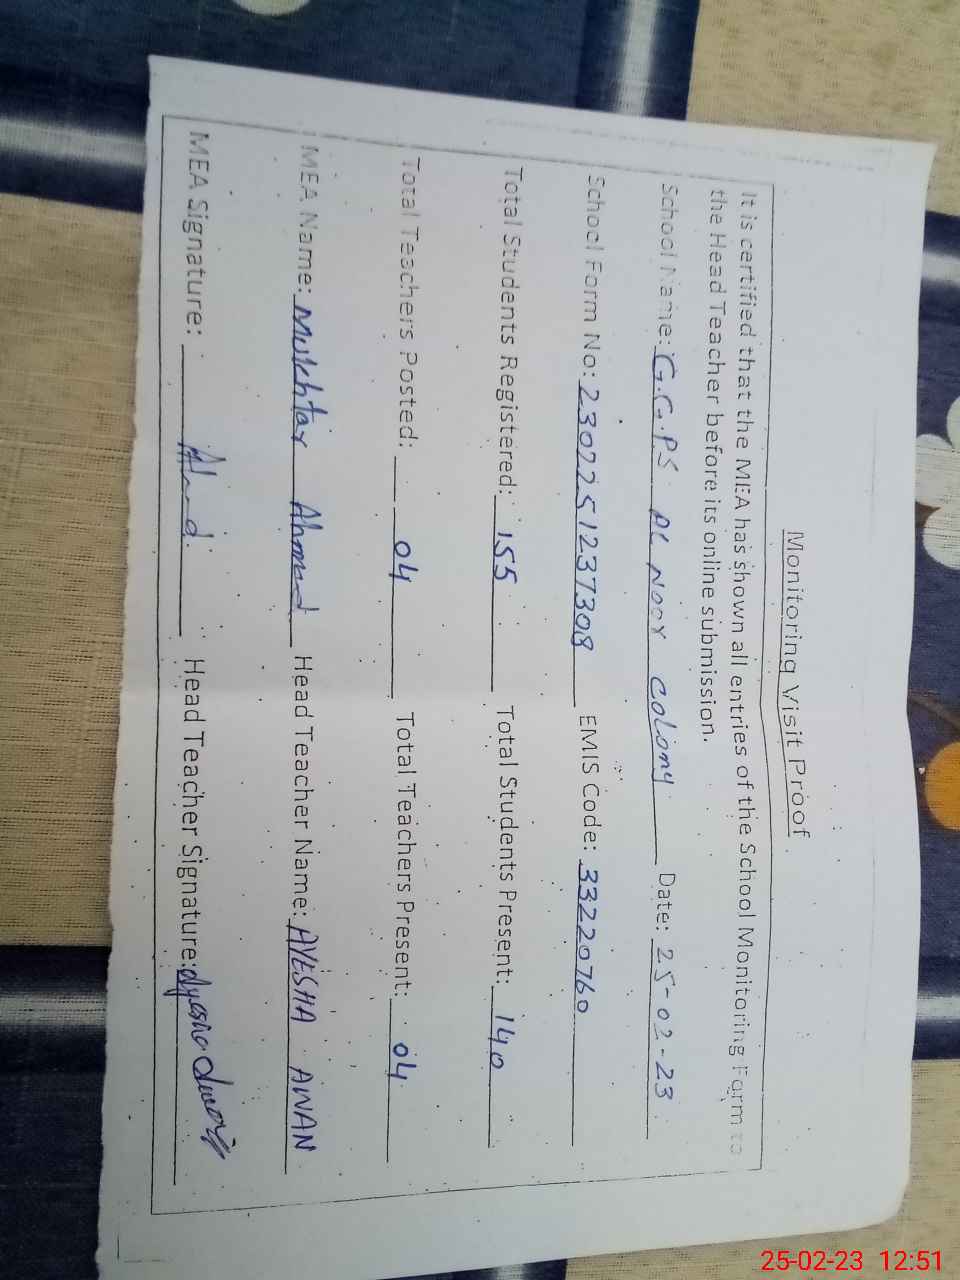 Monitoring Visit Proof
It is certified that the MEA has shown all entries of the School Monitoring Form to
the Head Teacher before its online submission.
School Name: G.G.PS Al Noor Colony Date: 25-02-23
School Form No: 2302251237308 EMIS Code: 33220760
Total Students Registered: 155 Total Students Present: 140
Total Teachers Posted: 04 Total Teachers Present: 04
MEA Name: Mukhtar Ahmad Head Teacher Name: AYESHA AWAN
MEA Signature: Ahmad Head Teacher Signature: Ayesha
25-02-23 12:51